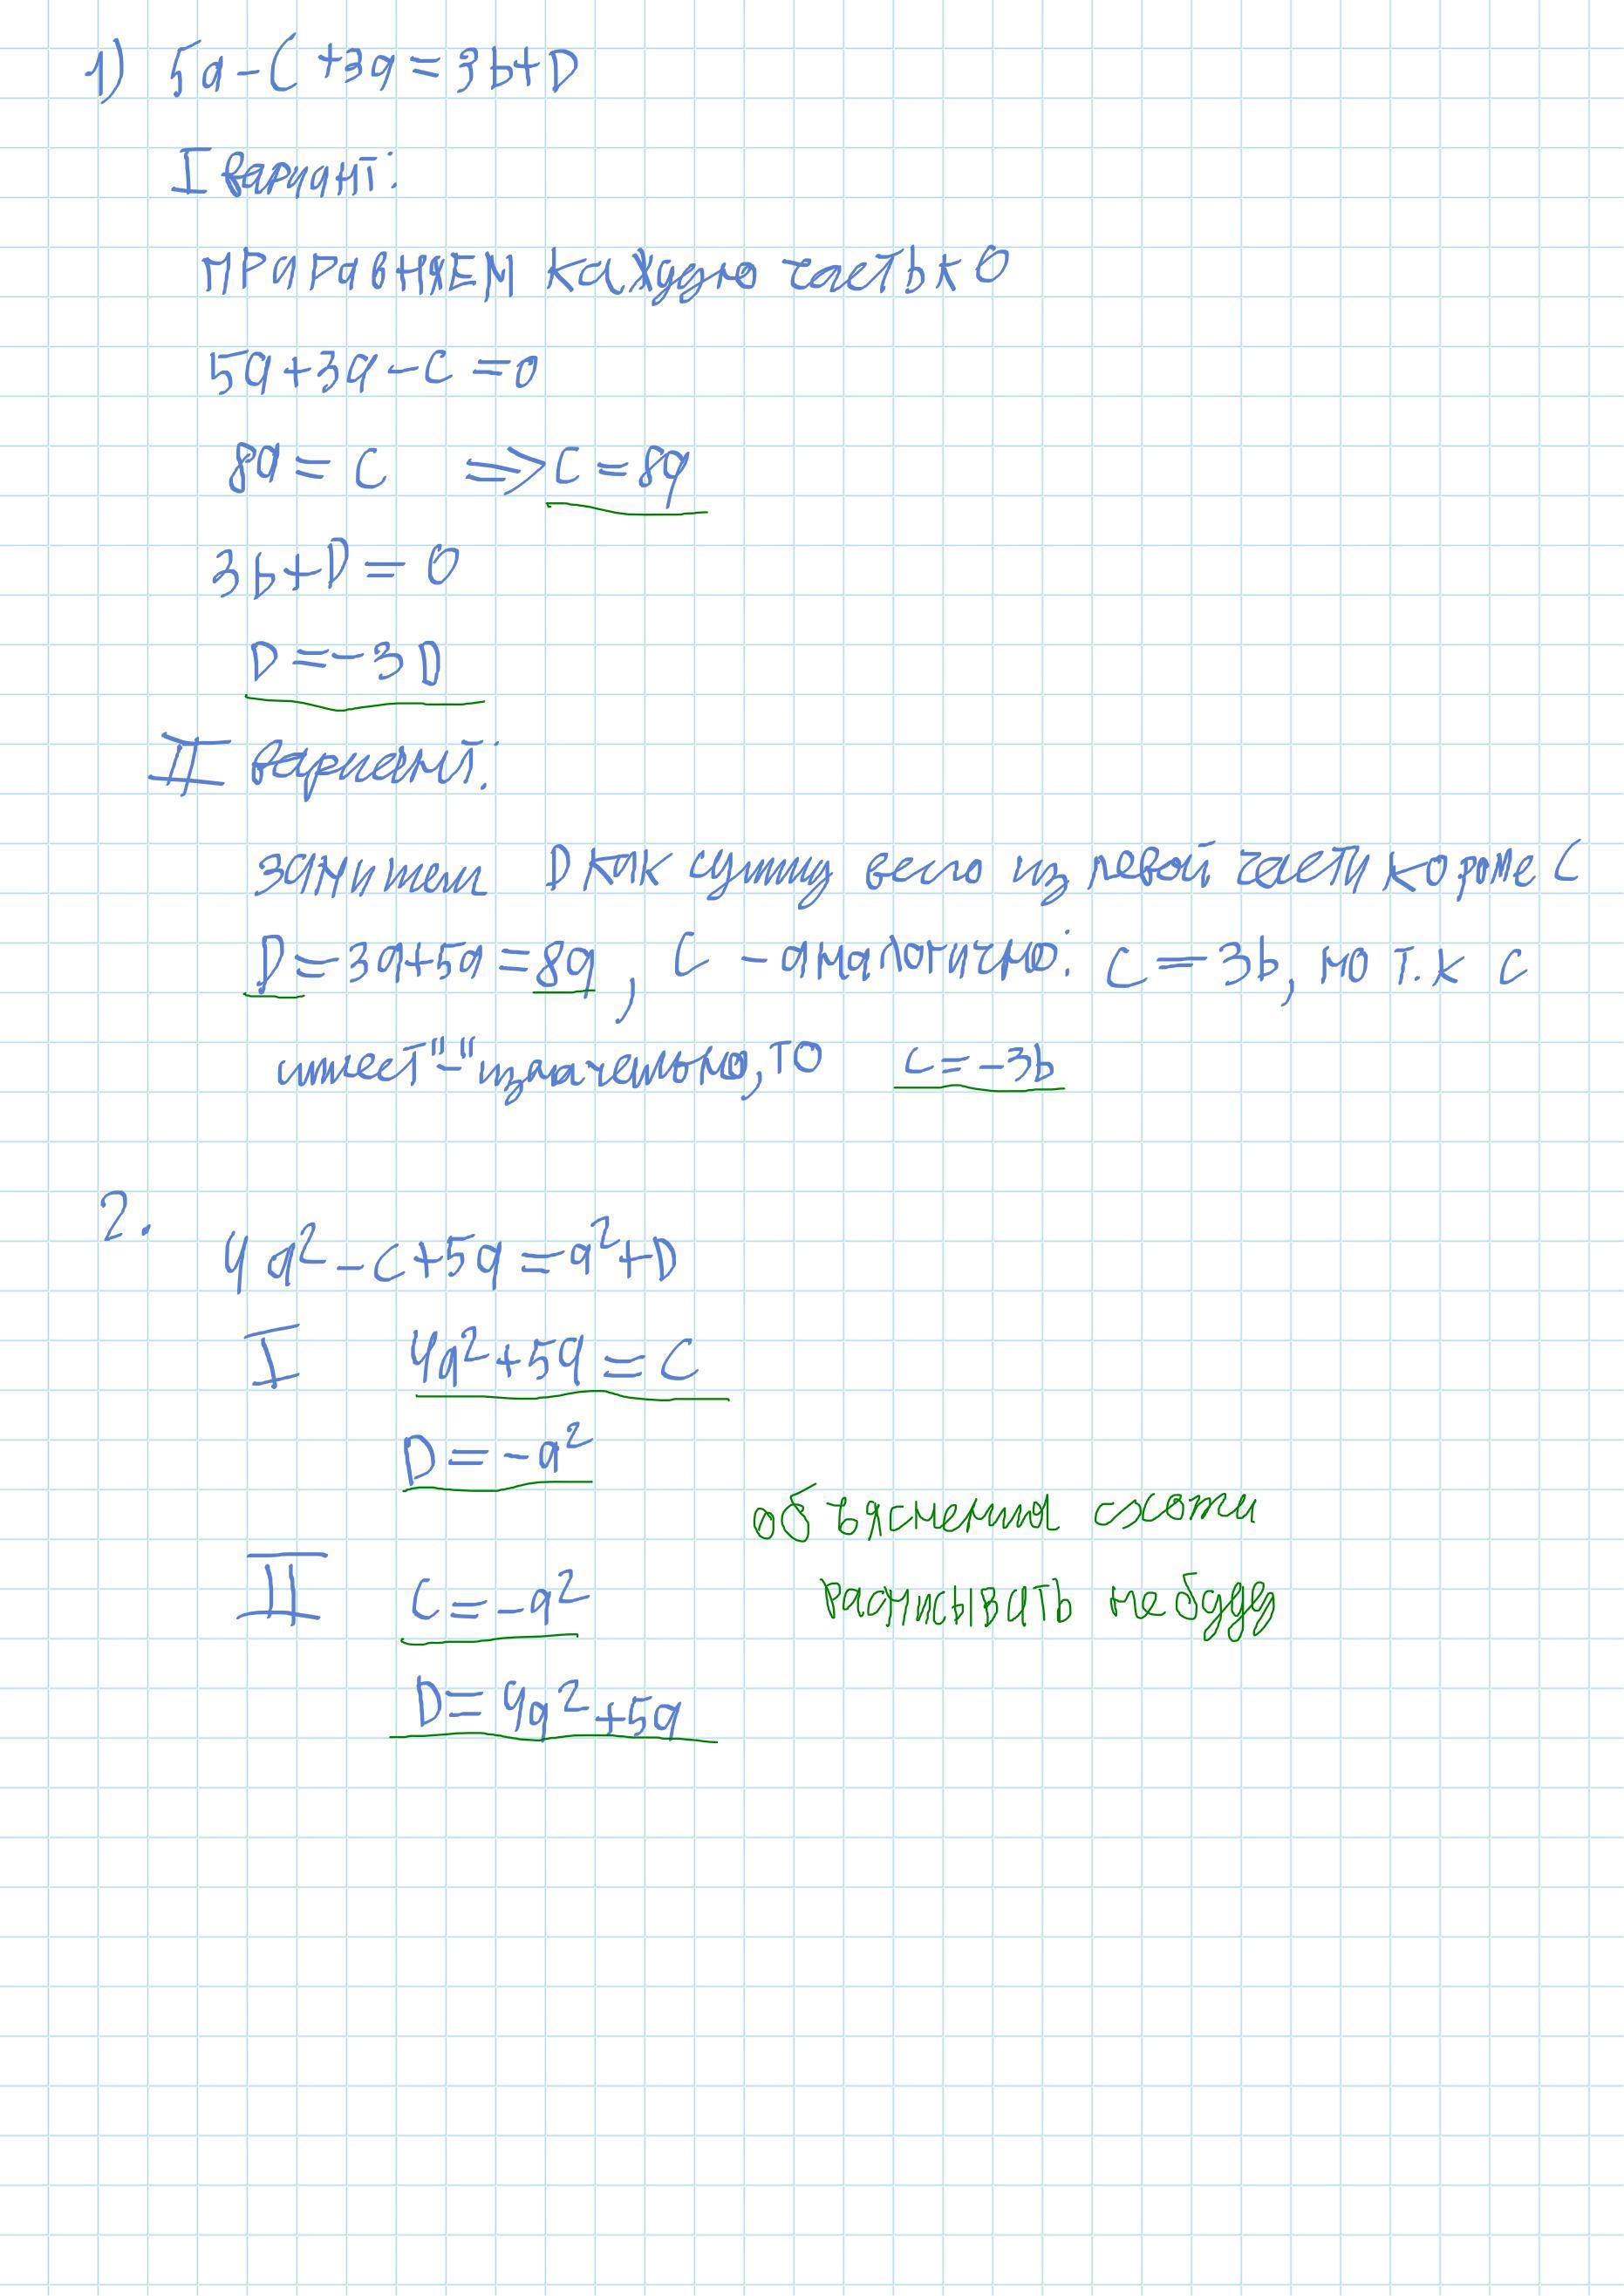 1) 5a-C+3a=3b+D
I вариант:
праравняем каждую часть к 0
5a+3a-c=0
8a=c ⇒ c=8a
3b+D=0
D=-3D
II вариант:
D как сумму всего из левой части короме C
D=3a+5a=8a, C - аналогично: C=3b, но т.к c
имеет "-" изначельно, то c=-3b
2.
4a²-c+5a=a²+D
I 4a²+5a=C
D=-a²
объяснения схоти
расписывать не буду
II C=-a²
D=4a²+5a